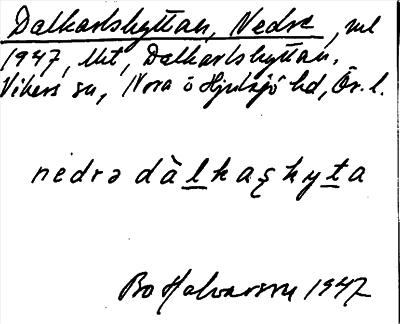 Dalkarlshyttan, Nedre, ml
1947, Ukt, Dalkarlshyttan,
Vikers sn, Nora o Hjulsjö hd, Ör. l.
nedrə dàlkaʂhyta
Bo Halvarson 1947